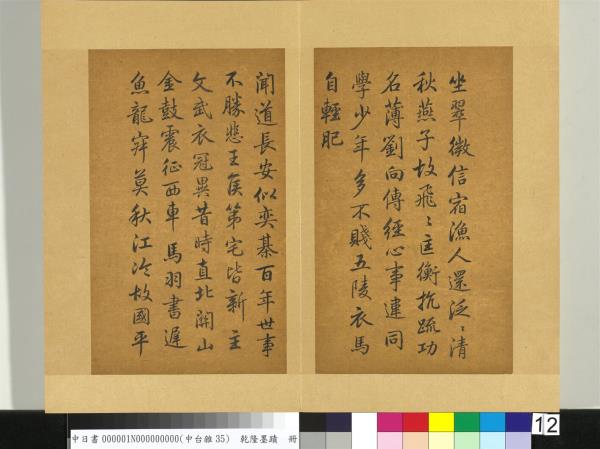 坐翠微信宿漁人還泛〻清
秋燕子故飛〻匡衡抗疏功
名薄劉向傳經心事違同
學少年多不賤五陵衣馬
自輕肥
聞道長安似奕棊百年世事
不勝悲王侯第宅皆新主
文武衣冠異昔時直北關山
金鼓震征西車馬羽書遲
魚龍寂寞秋江冷故國平
中日書000001N000000000(中台雜35) 乾隆墨蹟 冊
12